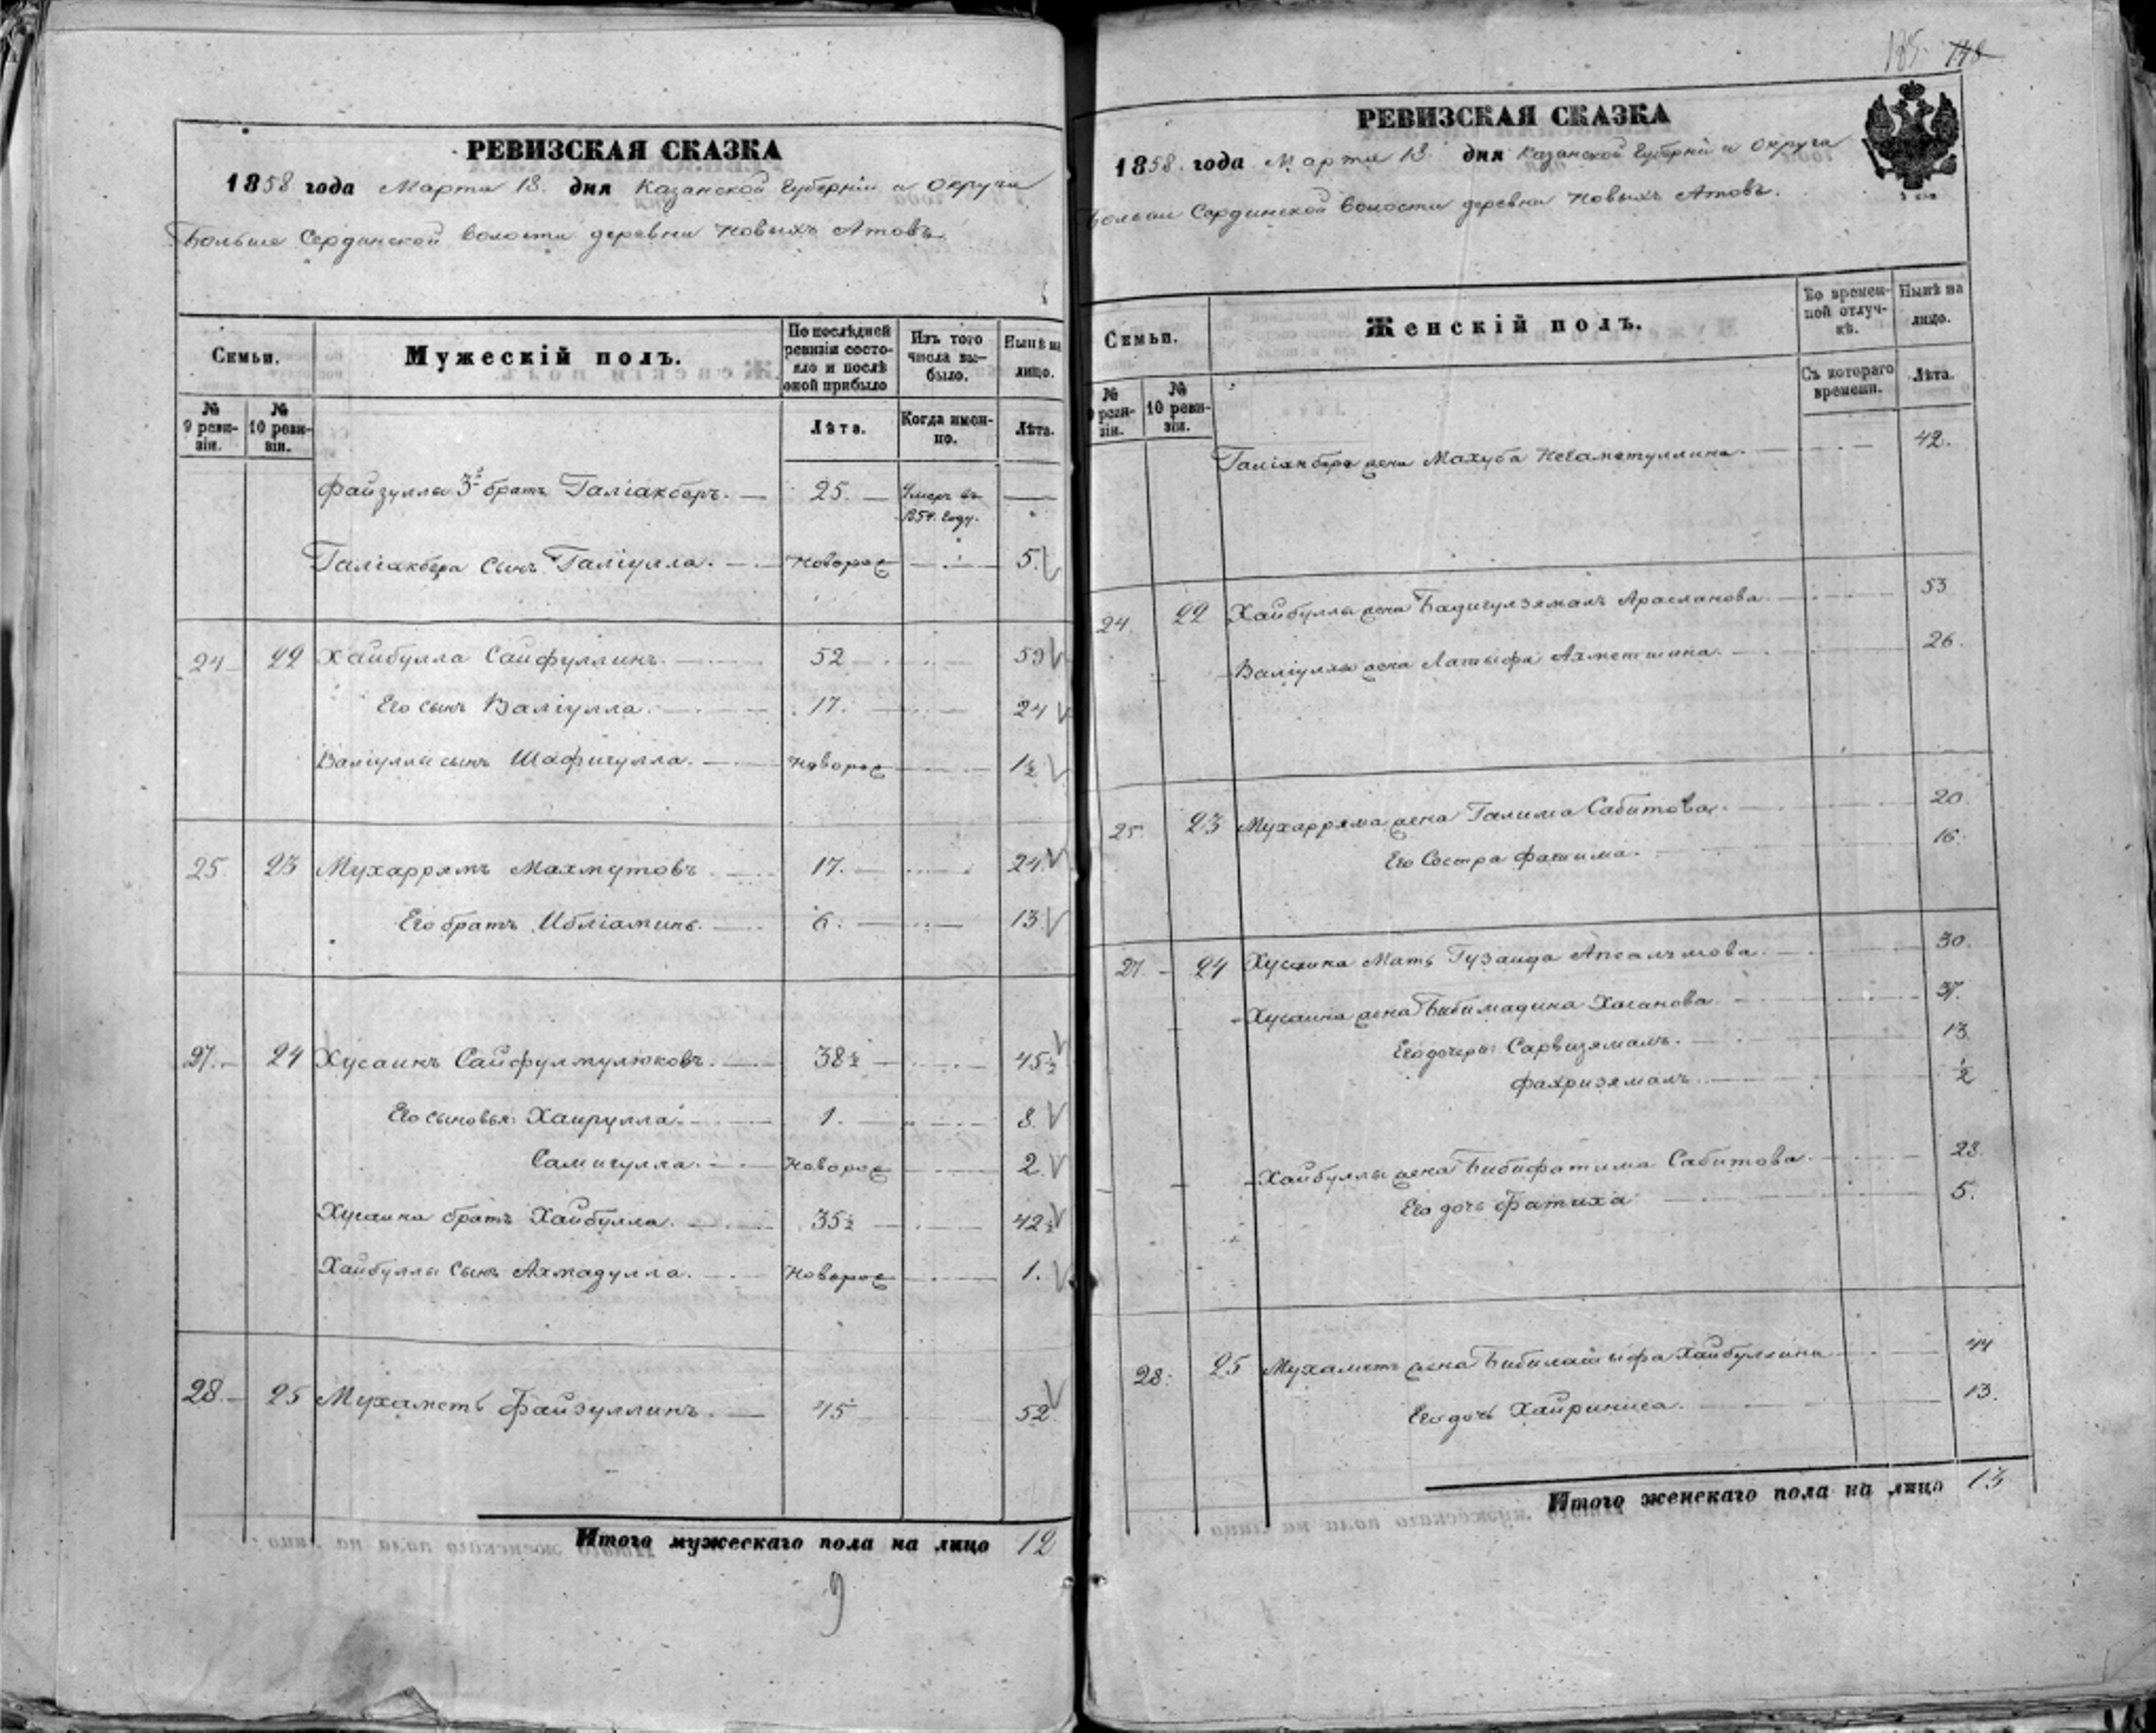 РЕВИЗСКАЯ СКАЗКА
1858 года Марта 13. дня Казанской Губерніи и Округа
Больше Сердинской волости деревни Новыхъ Атовъ
Семьи.
Мужескій полъ.
По послѣдней ревизіи состояло и послѣ оной прибыло
Изъ того числа выбыло.
Нынѣ на лицо.
№ 9 ревизіи.
№ 10 ревизіи.
Лѣта.
Когда именно.
Лѣта.
Файзуллы 3й братъ Галіакберъ. 25. Умеръ въ 1854. году.
Галіакбера сынъ Галіулла. Новорож 5.
24 22 Хайбулла Сайфуллинъ. 52 59
Его сынъ Валіулла. 17. 24
Валіуллы сынъ Шафигулла. Новорож 1½
25. 23 Мухаррямъ Махмутовъ 17. 24
Его братъ Ибліаминъ. 6. 13
27. 24 Хусаинъ Сайфулмулюковъ. 38½ 45½
Его сыновья: Хайрулла. 1. 8
Самигулла. Новорож 2
Хусаина братъ Хайбулла. 35½ 42½
Хайбуллы сынъ Ахмадулла. Новорож 1.
28. 25 Мухаметь Файзуллинъ. 45 52
Итого мужескаго пола на лицо 12
9
185. 148
РЕВИЗСКАЯ СКАЗКА
1858. года Марта 13. дня Казанской Губерніи и Округа
Больше Сердинской волости деревни Новыхъ Атовъ.
Семьи.
Женскій полъ.
Во временной отлучкѣ.
Нынѣ на лицо.
№ 9 ревизіи.
№ 10 ревизіи.
Съ котораго времени.
Лѣта.
Галіакбера жена Махуба Негаметуллина. 42.
24. 22 Хайбуллы жена Бадигулзямалъ Арасланова. 53
Валіуллы жена Латыфа Ахметшина. 26.
25. 23 Мухарряма жена Галима Сабитова. 20.
Его Сестра Фатима. 16.
27. 24 Хусаина Мать Гузаида 30.
Хусаина жена Бибимадина Хасанова. 37.
Его дочери: Сарвизямалъ. 13.
Фахризямалъ. ½
Хайбуллы жена Бибифатима Сабитова. 28.
Его дочь Фатиха 5.
28. 25 Мухаметь жена Бибилатыфа Хайбуллина 44
Его дочь Хайриниса. 13.
Итого женскаго пола на лицо 13